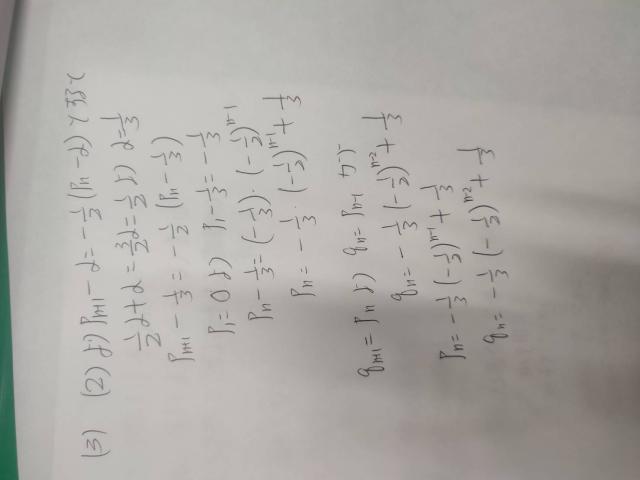 (3) (2)より P_{n+1} - α = -\frac{1}{2}(P_n - α) とおくと
\frac{1}{2}α + α = \frac{3}{2}α = \frac{1}{2} より α = \frac{1}{3}
P_{n+1} - \frac{1}{3} = -\frac{1}{2}(P_n - \frac{1}{3})
P_1 = 0 より P_1 - \frac{1}{3} = -\frac{1}{3}
P_n - \frac{1}{3} = (-\frac{1}{3}) · (-\frac{1}{2})^{n-1}
P_n = -\frac{1}{3} · (-\frac{1}{2})^{n-1} + \frac{1}{3}
q_{n+1} = P_n より q_n = P_{n-1}
q_n = -\frac{1}{3}(-\frac{1}{2})^{n-2} + \frac{1}{3}
P_n = -\frac{1}{3}(-\frac{1}{2})^{n-1} + \frac{1}{3}
q_n = -\frac{1}{3}(-\frac{1}{2})^{n-2} + \frac{1}{3}